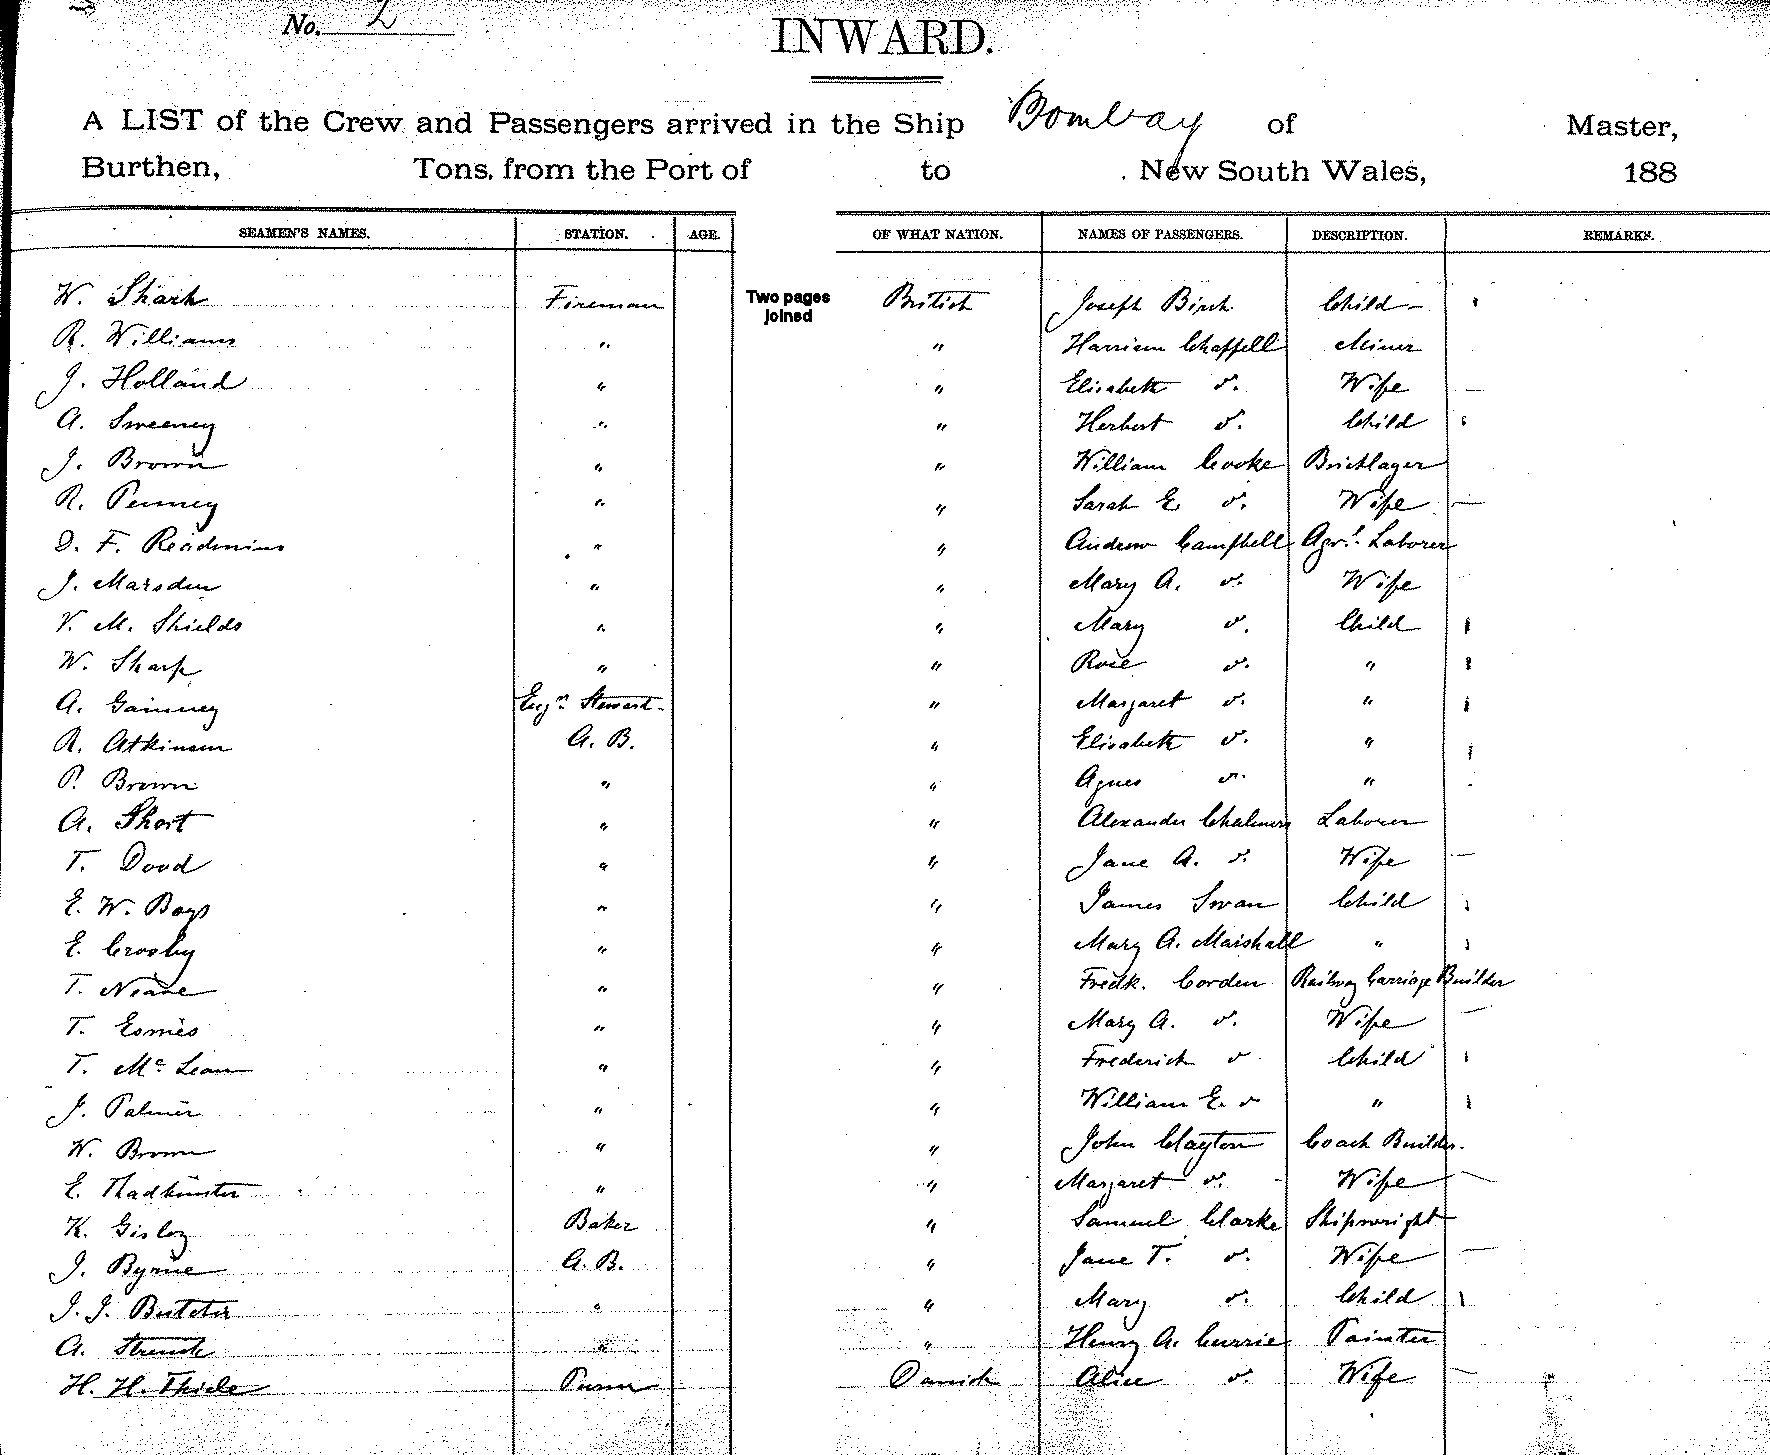 No. 2
INWARD.
A LIST of the Crew and Passengers arrived in the Ship Bombay of Master,
Burthen, Tons, from the Port of to New South Wales, 188
SEAMEN'S NAMES. STATION. AGE. OF WHAT NATION. NAMES OF PASSENGERS. DESCRIPTION. REMARKS.
W. Shark Fireman Two pages joined British Joseph Birch Child
R. Williams " " Chappell Miner
J. Holland " " Elisabeth do. Wife
A. Sweeney " " Herbert do. Child
J. Brown " " William Cooke Bricklayer
R. Penney " " Sarah E do. Wife
D. F. " " Andrew Campbell Agrl. Laborer
J. Marsden " " Mary A. do. Wife
V. M. Shields " " Mary do. Child
W. Sharp " " Rose do. "
A. Gainney Engrs Steward " Margaret do. "
R. Atkinson A. B. " Elisabeth do. "
P. Brown " " Agnes do. "
A. Short " " Alexander Chalmers Laborer
T. Dood " " Jane A. do. Wife
E. W. Boys " " James Swan Child
E. Crosby " " Mary A. Marshall "
T. " " Fredk. Corden Railway Carriage Builder
T. " " Mary A. do. Wife
T. McLean " " Frederick do Child
J. Palmer " " William E. do "
W. Brown " " John Clayton Coach Builder.
E. " " Margaret do. Wife
K. Baker " Samuel Clarke Shipwright
J. Byrne A. B. " Jane T. do. Wife
J. J. Butcher " " Mary do. Child
A. " " Henry A. Currie Painter
H. H. Thiele Purser Danish Alice do. Wife